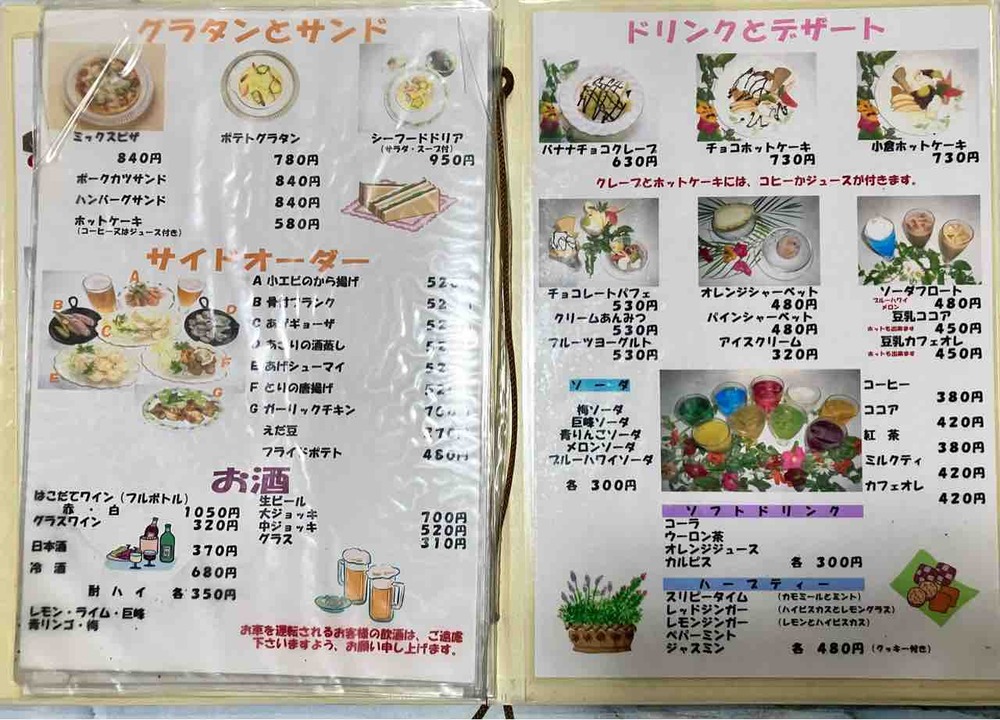 グラタンとサンド
ミックスピザ
840円
ポテトグラタン
780円
シーフードドリア
(サラダ・スープ付)
950円
ポークカツサンド 840円
ハンバーグサンド 840円
ホットケーキ 580円
(コーヒー又はジュース付き)
サイドオーダー
A
B
C
D
E
F
G
A 小エビのから揚げ
B 骨付フランク
C あげギョーザ
D あさりの酒蒸し
E あげシューマイ
F とりの唐揚げ
G ガーリックチキン
えだ豆
フライドポテト 480円
お酒
はこだてワイン (フルボトル)
赤 ・ 白 1050円
グラスワイン 320円
日本酒 370円
冷 酒 680円
酎 ハ イ 各 350円
レモン・ライム・巨峰
青リンゴ・梅
生ビール
大ジョッキ 700円
中ジョッキ 520円
グラス 310円
お車を運転されるお客様の飲酒は、ご遠慮
下さいますよう、お願い申し上げます。
ドリンクとデザート
バナナチョコクレープ
630円
チョコホットケーキ
730円
小倉ホットケーキ
730円
クレープとホットケーキには、コヒーかジュースが付きます。
チョコレートパフェ
530円
クリームあんみつ
530円
フルーツヨーグルト
530円
オレンジシャーベット
480円
パインシャーベット
480円
アイスクリーム
320円
ソーダフロート
ブルーハワイ
メロン
480円
豆乳ココア
ホットも出来ます 450円
豆乳カフェオレ
ホットも出来ます 450円
ソ ー ダ
梅ソーダ
巨峰ソーダ
青りんごソーダ
メロンソーダ
ブルーハワイソーダ
各 300円
コーヒー 380円
ココア 420円
紅 茶 380円
ミルクティ 420円
カフェオレ 420円
ソ フ ト ド リ ン ク
コーラ
ウーロン茶
オレンジジュース
カルピス 各 300円
ハ ー ブ テ ィ ー
スリピータイム (カモミールとミント)
レッドジンガー (ハイビスカスとレモングラス)
レモンジンガー (レモンとハイビスカス)
ペパーミント
ジャスミン 各 480円 (クッキー付き)